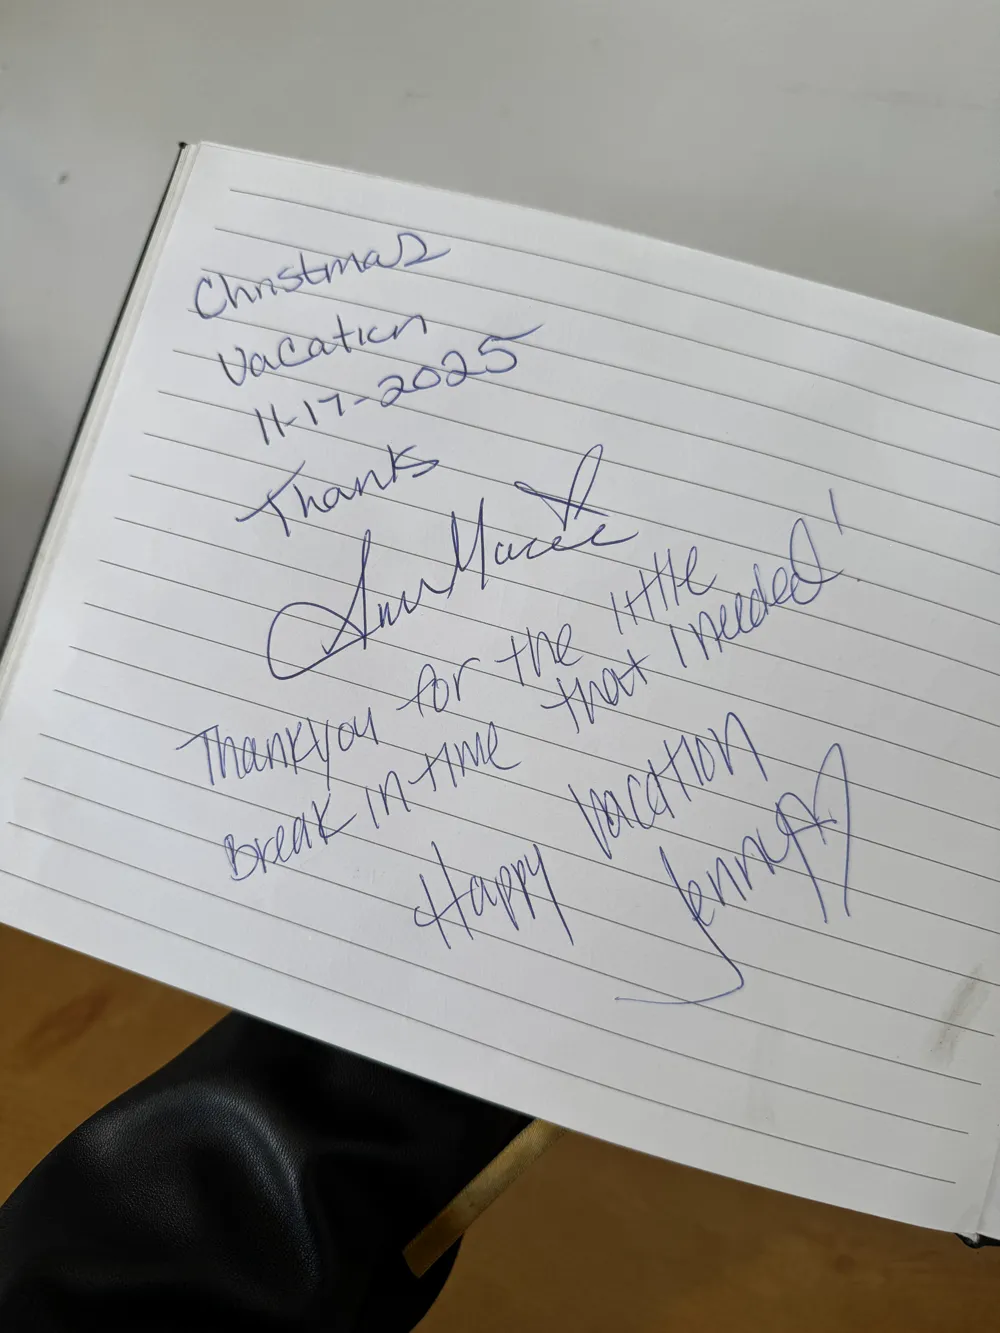 Christmas
Vacation
11-17-2025
Thanks
Ann Marie
Thank you for the little
Break in time that I needed!
Happy Vacation
Jenny A.